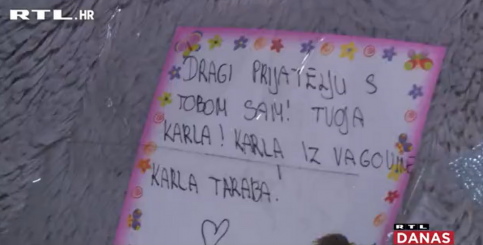 RTL.HR
DRAGI PRIJATELJU S
TOBOM SAM! TUGA
KARLA! KARLA IZ VAGONNE
KARLA TARABA.
RTL
DANAS